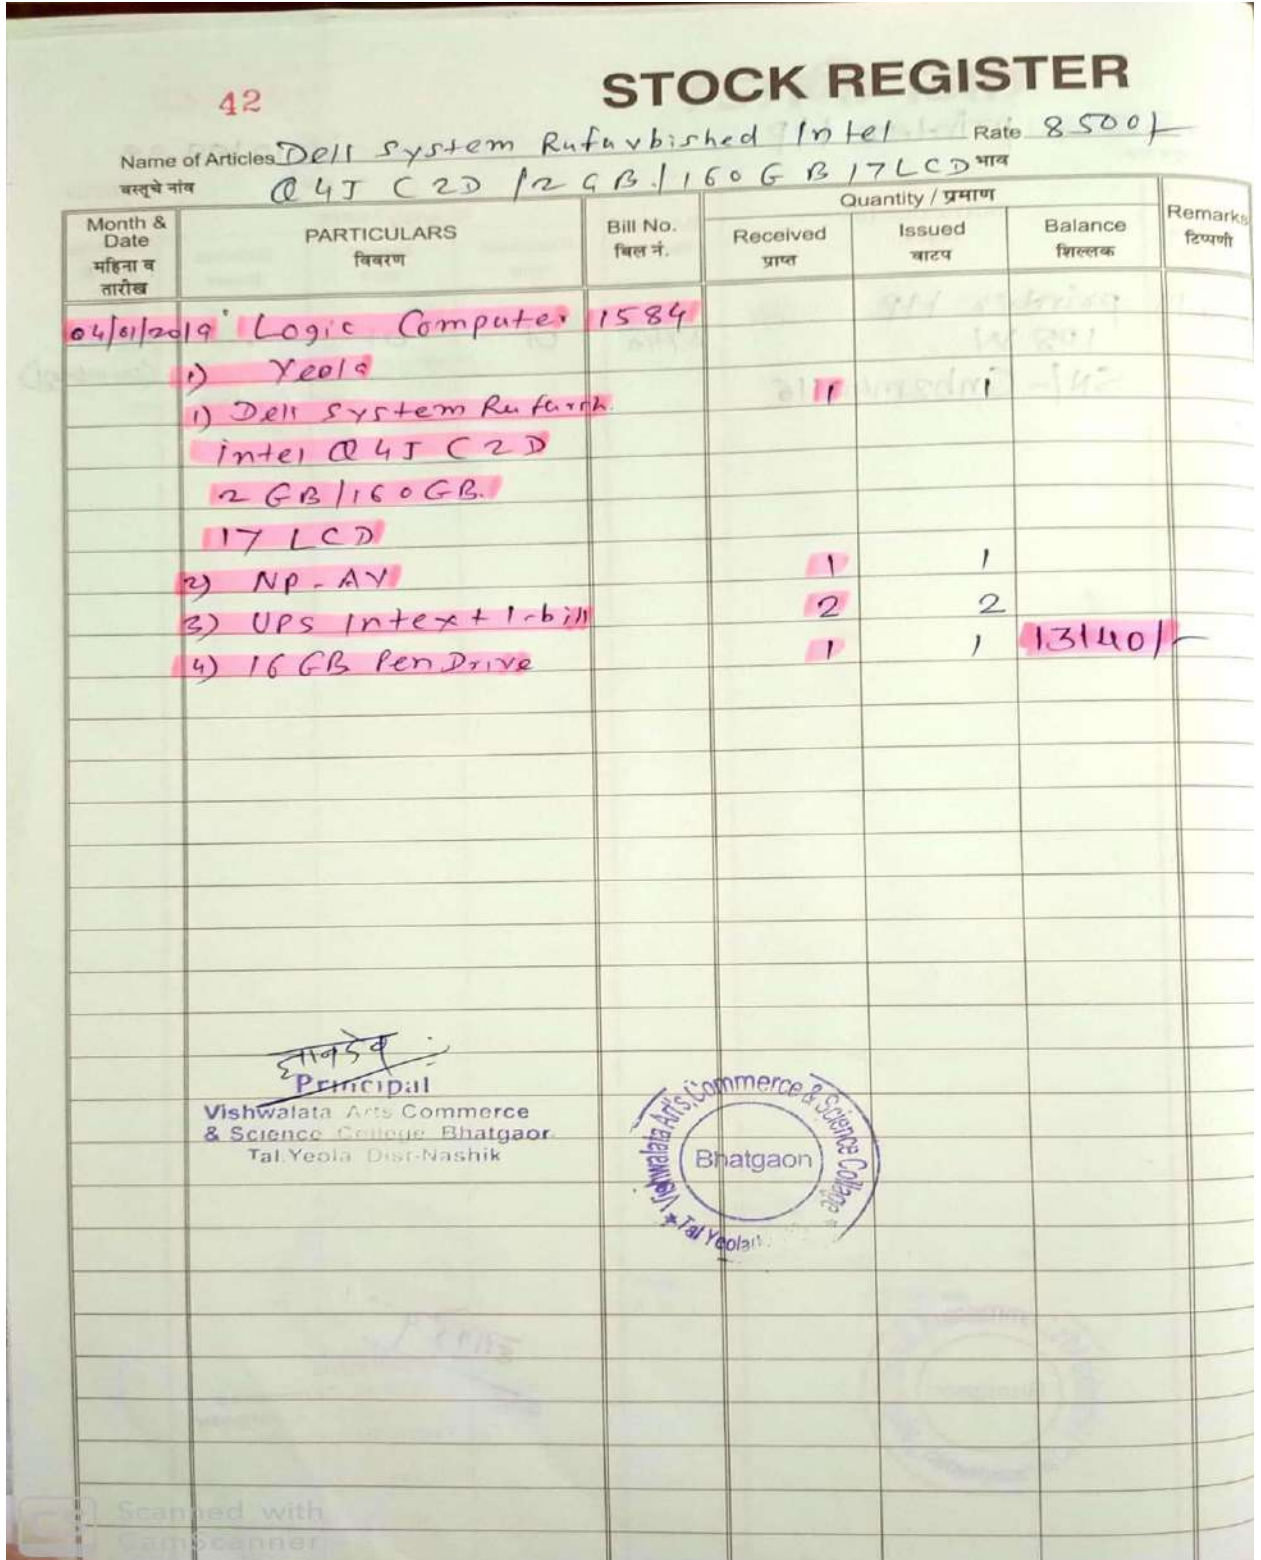 42
STOCK REGISTER
Name of Articles Dell System Rufurbished Intel Rate 8500/-
वस्तूचे नांव Q 4J C2D /2 GB./160 GB 17 LCD भाव
Month & Date महिना व तारीख PARTICULARS विवरण Bill No. बिल नं. Quantity / प्रमाण Remarks टिप्पणी
Received प्राप्त Issued वाटप Balance शिल्लक
04/01/2019 Logic Computer 1584
1) Yeola
1) Dell System Rufurch. 1 1
intel Q 4J C2D
2 GB/160GB.
17 LCD
2) NP-AV 1 1
3) UPS Intex + 1-bill 2 2
4) 16 GB Pen Drive 1 1 13140/-
ज्ञानदेव
Principal
Vishwalata Arts Commerce
& Science College Bhatgaon
Tal.Yeola Dist-Nashik
Vishwalata Arts, Commerce & Science College
Bhatgaon
Tal Yeola
Scanned with
CamScanner